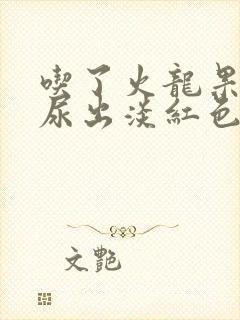 喫了火龍果
尿出淡紅色
文艷